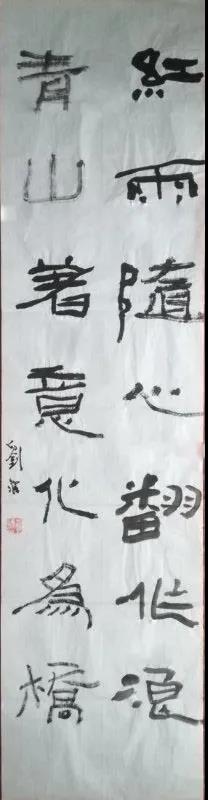 紅雨隨心翻作浪
青山著意化為橋
劉